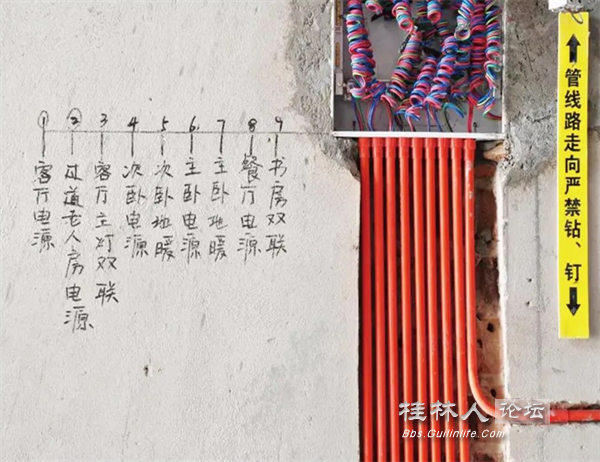 ① 客厅电源
② 过道老人房电源
3 客厅主灯双联
4 次卧电源
5 次卧地暖
6 主卧电源
7 主卧地暖
8 餐厅电源
9 书房双联
管线路走向严禁钻、钉
桂林人论坛
Bbs.Guilinlife.Com